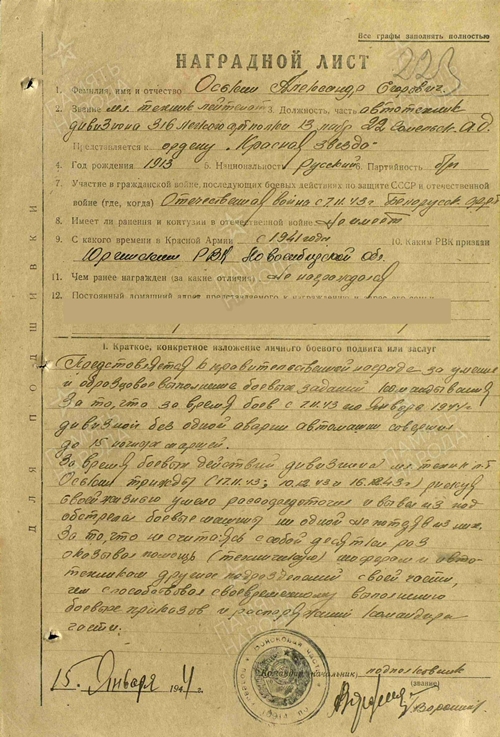 Все графы заполнять полностью
НАГРАДНОЙ ЛИСТ
1. Фамилия, имя и отчество Оськин Александр Егорович
2. Звание мл. техник лейтенант 3. Должность, часть автотехник
дивизиона 316 легкого артполка 13 лабр 22
Представляется к ордену „Красная Звезда“
4. Год рождения 1913 5. Национальность Русский 6. Партийность б/п
7. Участие в гражданской войне, последующих боевых действиях по защите СССР и отечественной
войне (где, когда) Отечественная война с 7.11.43 г. Белорусск. фр-т
8. Имеет ли ранения и контузии в отечественной войне не имеет
9. С какого времени в Красной Армии с 1941 года 10. Каким РВК призван
РВК Новосибирской обл.
11. Чем ранее награжден (за какие отличия) не награждался
12. Постоянный домашний адрес представляемого к награждению и адрес его семьи
I. Краткое, конкретное изложение личного боевого подвига или заслуг
Представляется к правительственной награде за умение
и образцовое выполнение боевых заданий командования
За то, что за время боев с 7.11.43 по января 1944 г.
дивизион без одной аварии автомашин совершил
до 15 ночных маршей.
За время боевых действий дивизиона мл. техник л-т
Оськин трижды (17.11.43; 10.12.43 и 16.12.43 г.) рискуя
своей жизнью умело рассредоточил и вывел из под
обстрела боевые машины ни одной не потеряв из них.
За то, что не считаясь с собой десятки раз
оказывал помощь (техническую) шоферам и авто-
техникам других подразделений своей части,
чем способствовал своевременному выполнению
боевых приказов и распоряжений командира
части.
15. Января 1944 г.
Командир (начальник) подполковник
(звание)
ДЛЯ ПОДШИВКИ